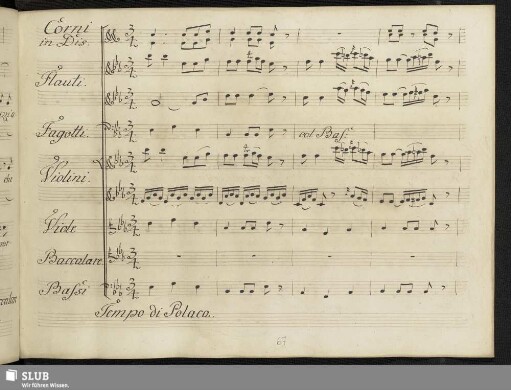 Corni
in Dis.
Flauti.
Fagotti.
col Bass.
Violini.
Viole
Baccalare
Bassi
Tempo di Polaca.
SLUB
Wir führen Wissen.